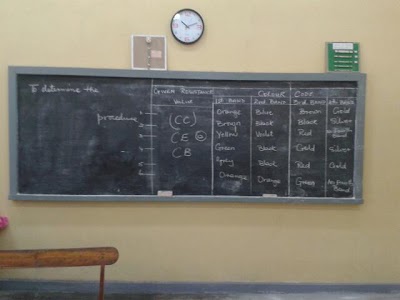 To determine the
procedure
Given Resistance Colour Code
Value 1st Band 2nd Band 3rd Band 4th Band
1 Orange Blue Brown Gold
2 (CC) Brown Black Black Silver
3 CE Yellow Violet Red
4 CB Green Black Gold Silver
5 Grey Black Red Gold
6 Orange Orange Green No fourth Band